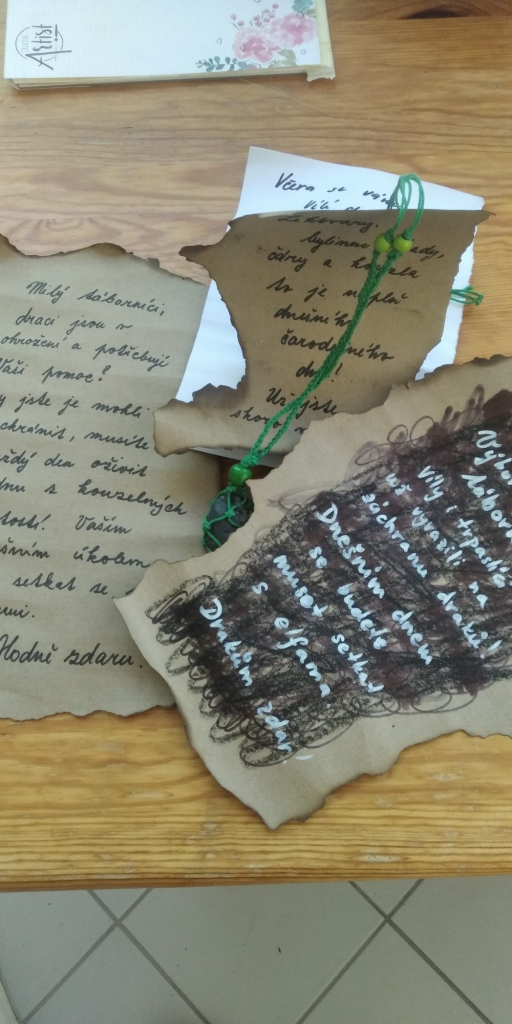 Artist
Včera se vám
Lektvary,
bylinno
čáry a kouzla
to je náplň
dnešního
čarodejného
dne!
Už jste
skoro
Milý táborníci,
draci jsou v
ohrožení a potřebují
Vaší pomoc!
jste je mohli
chránit, musíte
ždý den oživit
dnu z kouzelných
tostí. Vaším
šním úkolem
setkat se
mi.
Hodně zdaru.
Víly i trpaslí
už vyrazili na
záchranu draků!
Dnešním dnem
se budete
muset setkat
s elfama
Drakům zdar!